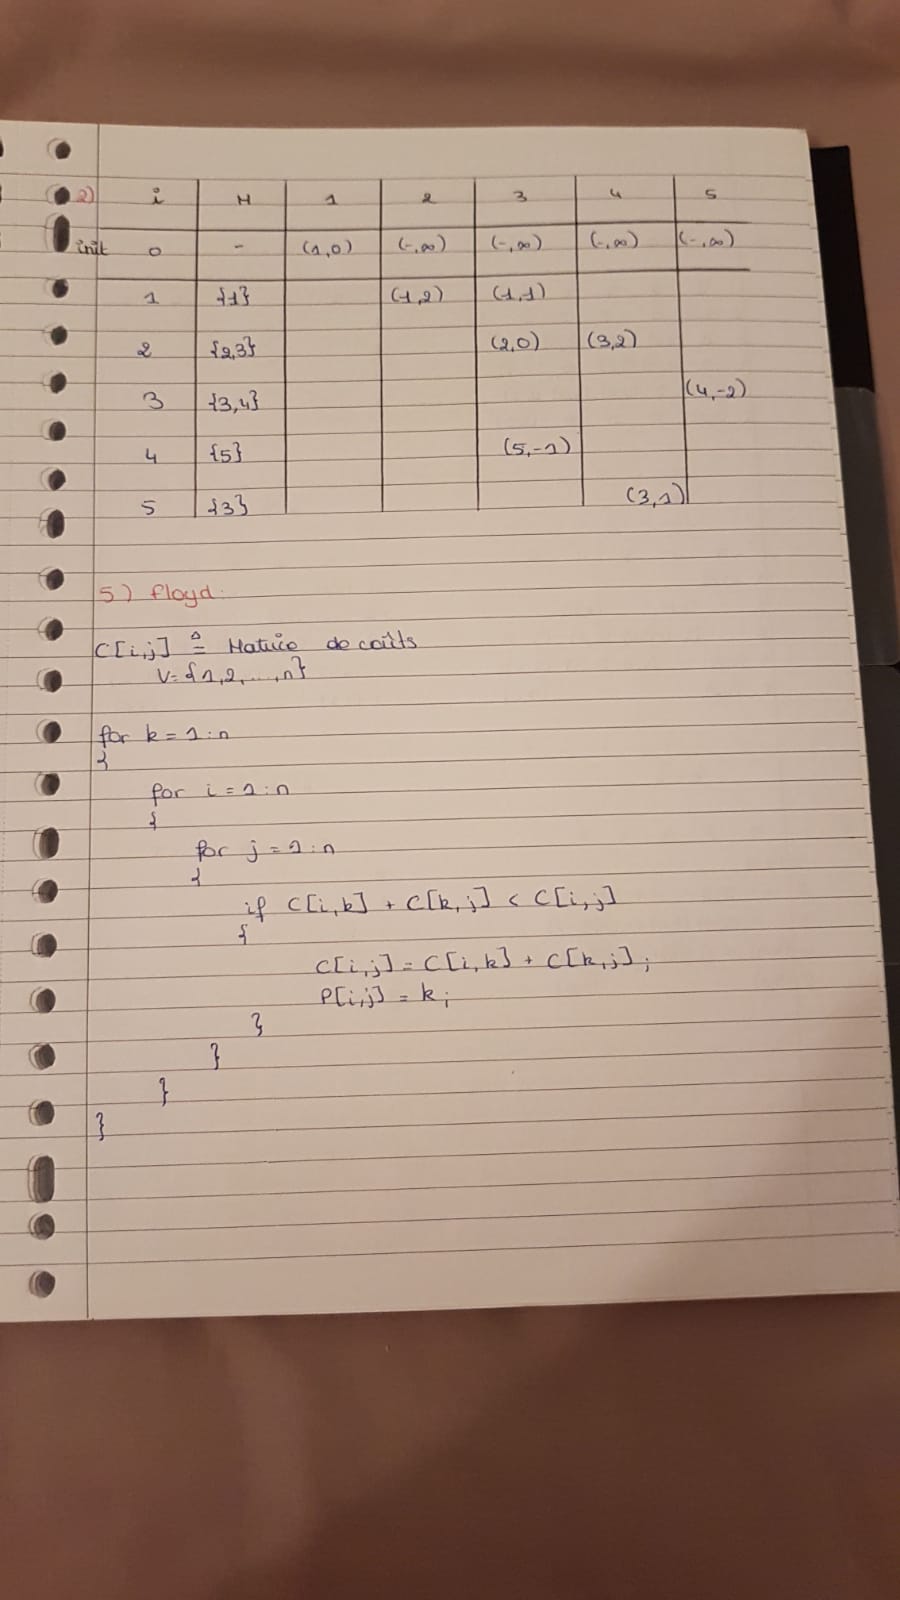 2) i M 1 2 3 4 5
init 0 - (1,0) (-,∞) (-,∞) (-,∞) (-,∞)
1 {1} (1,2) (1,1)
2 {2,3} (2,0) (3,2)
3 {3,4} (4,-2)
4 {5} (5,-1)
5 {3} (3,1)
5) Floyd:
C[i,j] ≜ Matrice de coûts
V={1,2,...,n}
for k = 1:n
{
for i = 1:n
{
for j = 1:n
{
if C[i,k] + C[k,j] < C[i,j]
{
C[i,j] = C[i,k] + C[k,j];
P[i,j] = k;
}
}
}
}